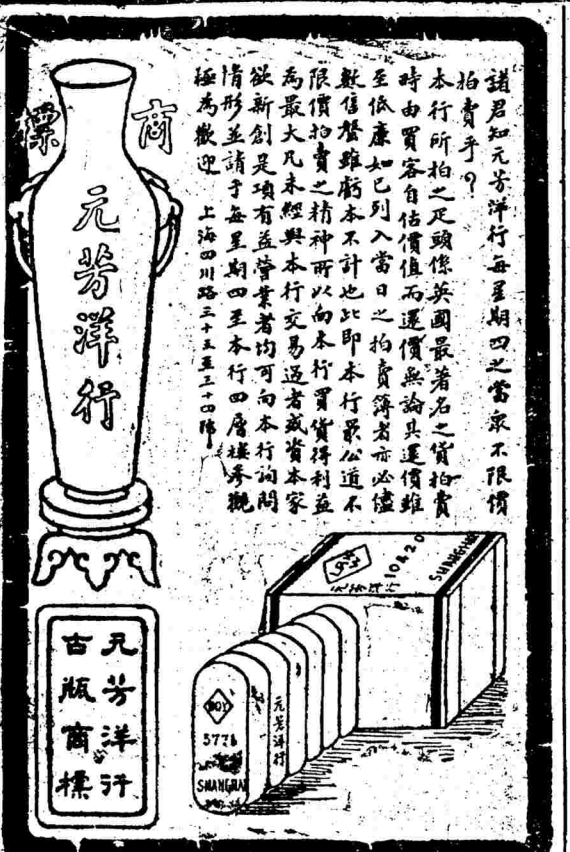 諸君知元芳洋行每星期四之當衆不限價
拍賣乎？
本行所拍之疋頭係英國最著名之貨拍賣
時由買客自估價值而還價無論其還價雖
至低廉如已列入當日之拍賣簿者亦必儘
數售罄雖虧本不計也此即本行最公道不
限價拍賣之精神所以向本行買貨得利益
為最大凡未經與本行交易過者或資本家
欲新創是項有益營業者均可向本行詢問
情形並請于每星期四至本行四層樓參觀
極為歡迎　上海四川路三十五至三十四號
商標
元芳洋行
元芳洋行
古瓶商標
元芳洋行
10&20
SHANGHAI
BOY
5771
SHANGHAI
元芳洋行